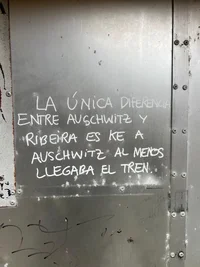 LA ÚNICA DIFERENCIA
ENTRE AUSCHWITZ Y
RIBEIRA ES KE A
AUSCHWITZ AL MENOS
LLEGABA EL TREN.